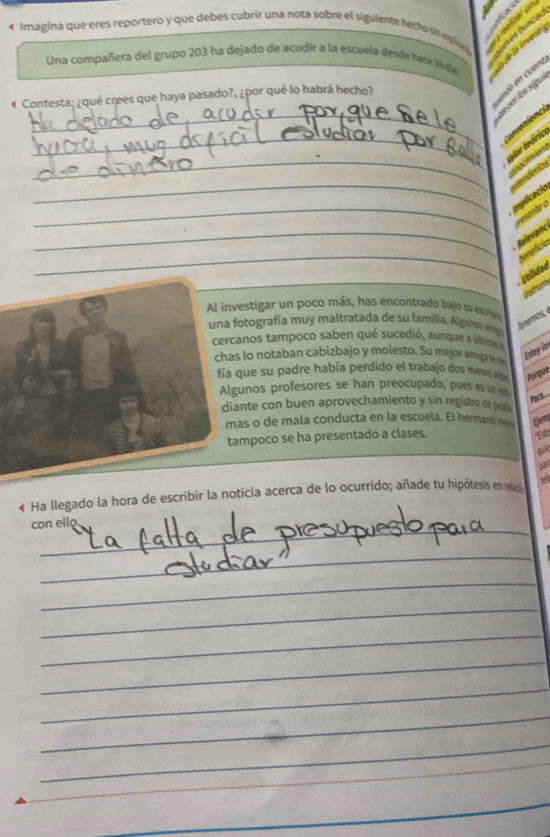 Imagina que eres reportero y que debes cubrir una nota sobre el siguiente hecho sin
Una compañera del grupo 203 ha dejado de acudir a la escuela desde hace
Contesta: ¿qué crees que haya pasado?, ¿por qué lo habrá hecho?
Ha dejado de, acudir por, que se le
muy dificil estudiar por falta
de dinero
Al investigar un poco más, has encontrado bajo su
una fotografía muy maltratada de su familia. Algunos
cercanos tampoco saben qué sucedió, aunque a
chas lo notaban cabizbajo y molesto. Su mejor amiga
fía que su padre había perdido el trabajo dos meses
Algunos profesores se han preocupado, pues es un
diante con buen aprovechamiento y sin registro de
mas o de mala conducta en la escuela. El hermano
tampoco se ha presentado a clases.
Ha llegado la hora de escribir la noticia acerca de lo ocurrido; añade tu hipótesis en
con ello.
"La falta de presupuesto para
estudiar"
Conveniencia
Relevanci
Utilidad
Tenemos,
Estoy in
Porque
Para